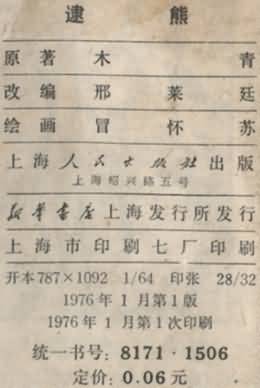 逮熊
原著 木青
改编 邢莱廷
绘画 冒怀苏
上海人民出版社出版
上海绍兴路五号
新华书店上海发行所发行
上海市印刷七厂印刷
开本787×1092 1/64 印张 28/32
1976年1月第1版
1976年1月第1次印刷
统一书号: 8171·1506
定价: 0.06元